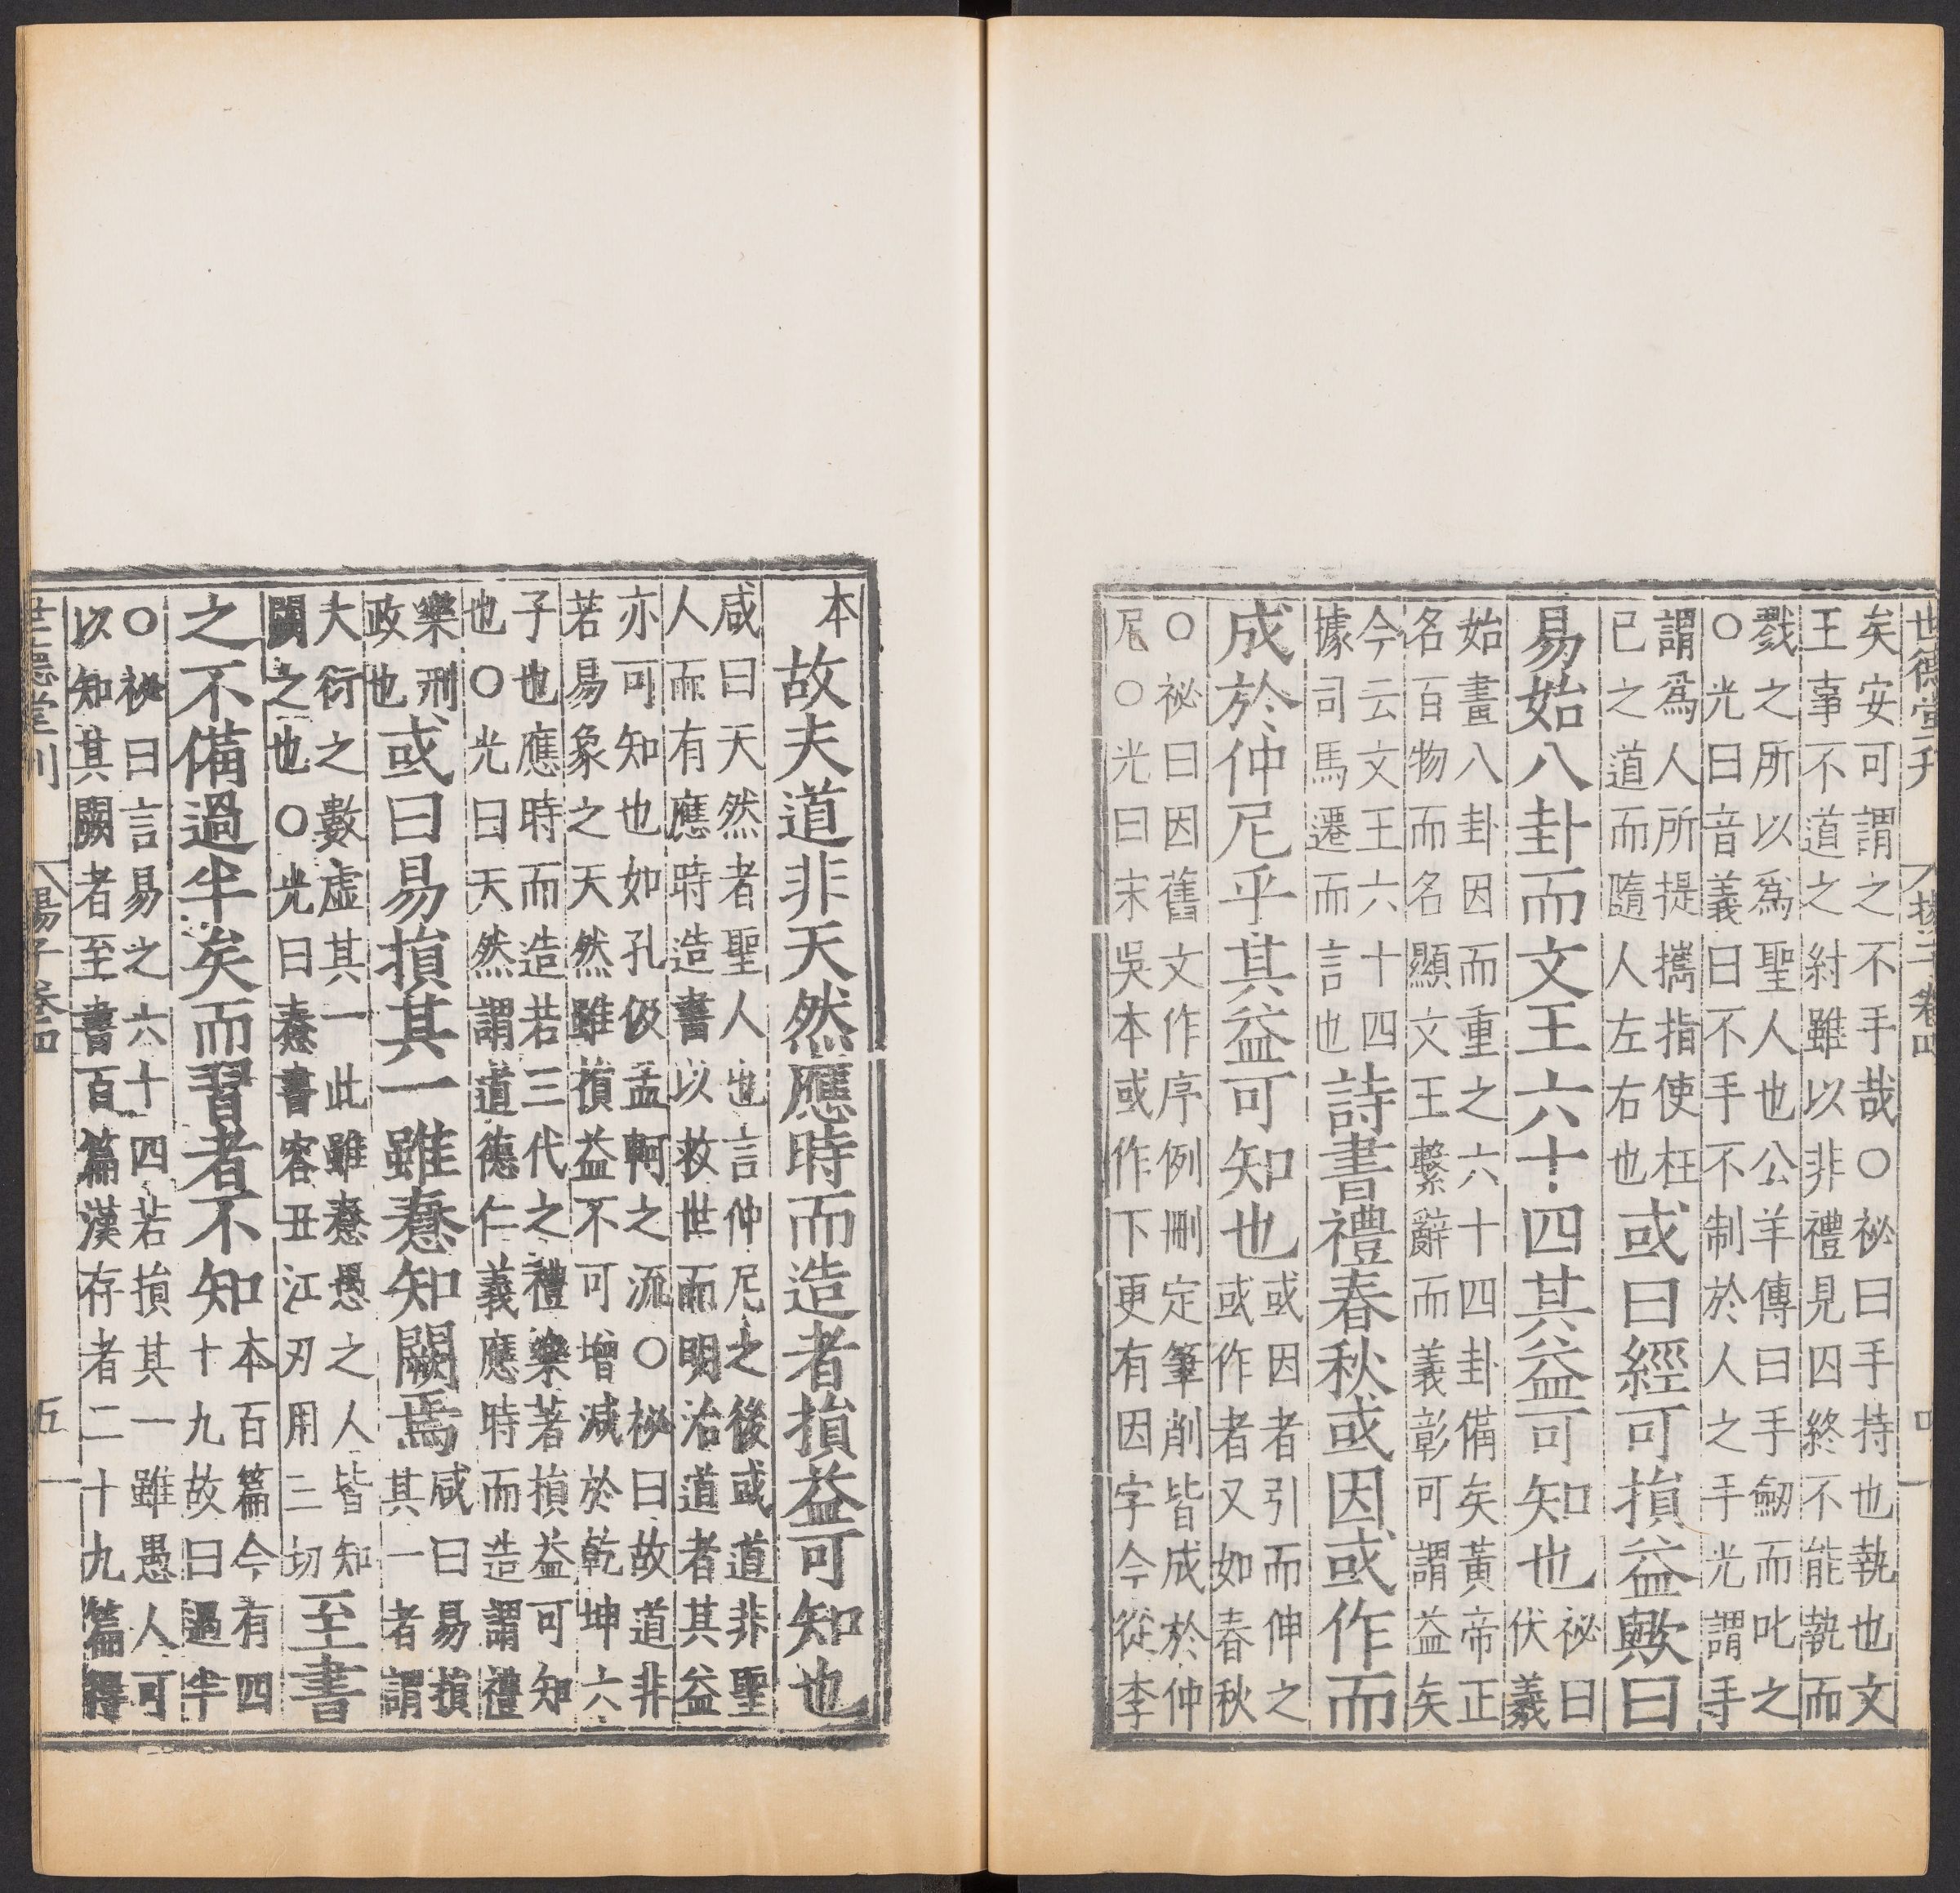 世德堂刊 揚子卷四 四
矣安可謂之不手哉○祕曰手持也執也文
王事不道之紂雖以非禮見囚終不能執而
戮之所以爲聖人也公羊傳曰手劒而叱之
○光曰音義曰不手不制於人之手光謂手
謂爲人所提攜指使枉
已之道而隨人左右也
或曰經可損益歟曰
易始八卦而文王六十四其益可知也
祕曰
伏羲
始畫八卦因而重之六十四卦備矣黃帝正
名百物而名顯文王繫辭而義彰可謂益矣
今云文王六十四
據司馬遷而言也
詩書禮春秋或因或作而
成於仲尼乎其益可知也
或因者引而伸之
或作者又如春秋
○祕曰因舊文作序例刪定筆削皆成於仲
尼○光曰末吳本或作下更有因字今從李
本
故夫道非天然應時而造者損益可知也
咸曰天然者聖人也言仲尼之後或道非聖
人而有應時造書以救世而明治道者其益
亦可知也如孔伋孟軻之流○祕曰故道非
若易象之天然雖損益不可增減於乾坤六
子也應時而造若三代之禮樂著損益可知
也○光曰天然謂道德仁義應時而造謂禮
樂刑
政也
或曰易損其一雖憃知闕焉
咸曰易損
其一者謂
大衍之數虛其一此雖憃愚之人皆知
闕之也○光曰憃書容丑江刃用二切
至書
之不備過半矣而習者不知
本百篇今有四
十九故曰過半
○祕曰言易之六十四若損其一雖愚人可
以知其闕者至書百篇漢存者二十九篇得
世德堂刊 揚子卷四 五